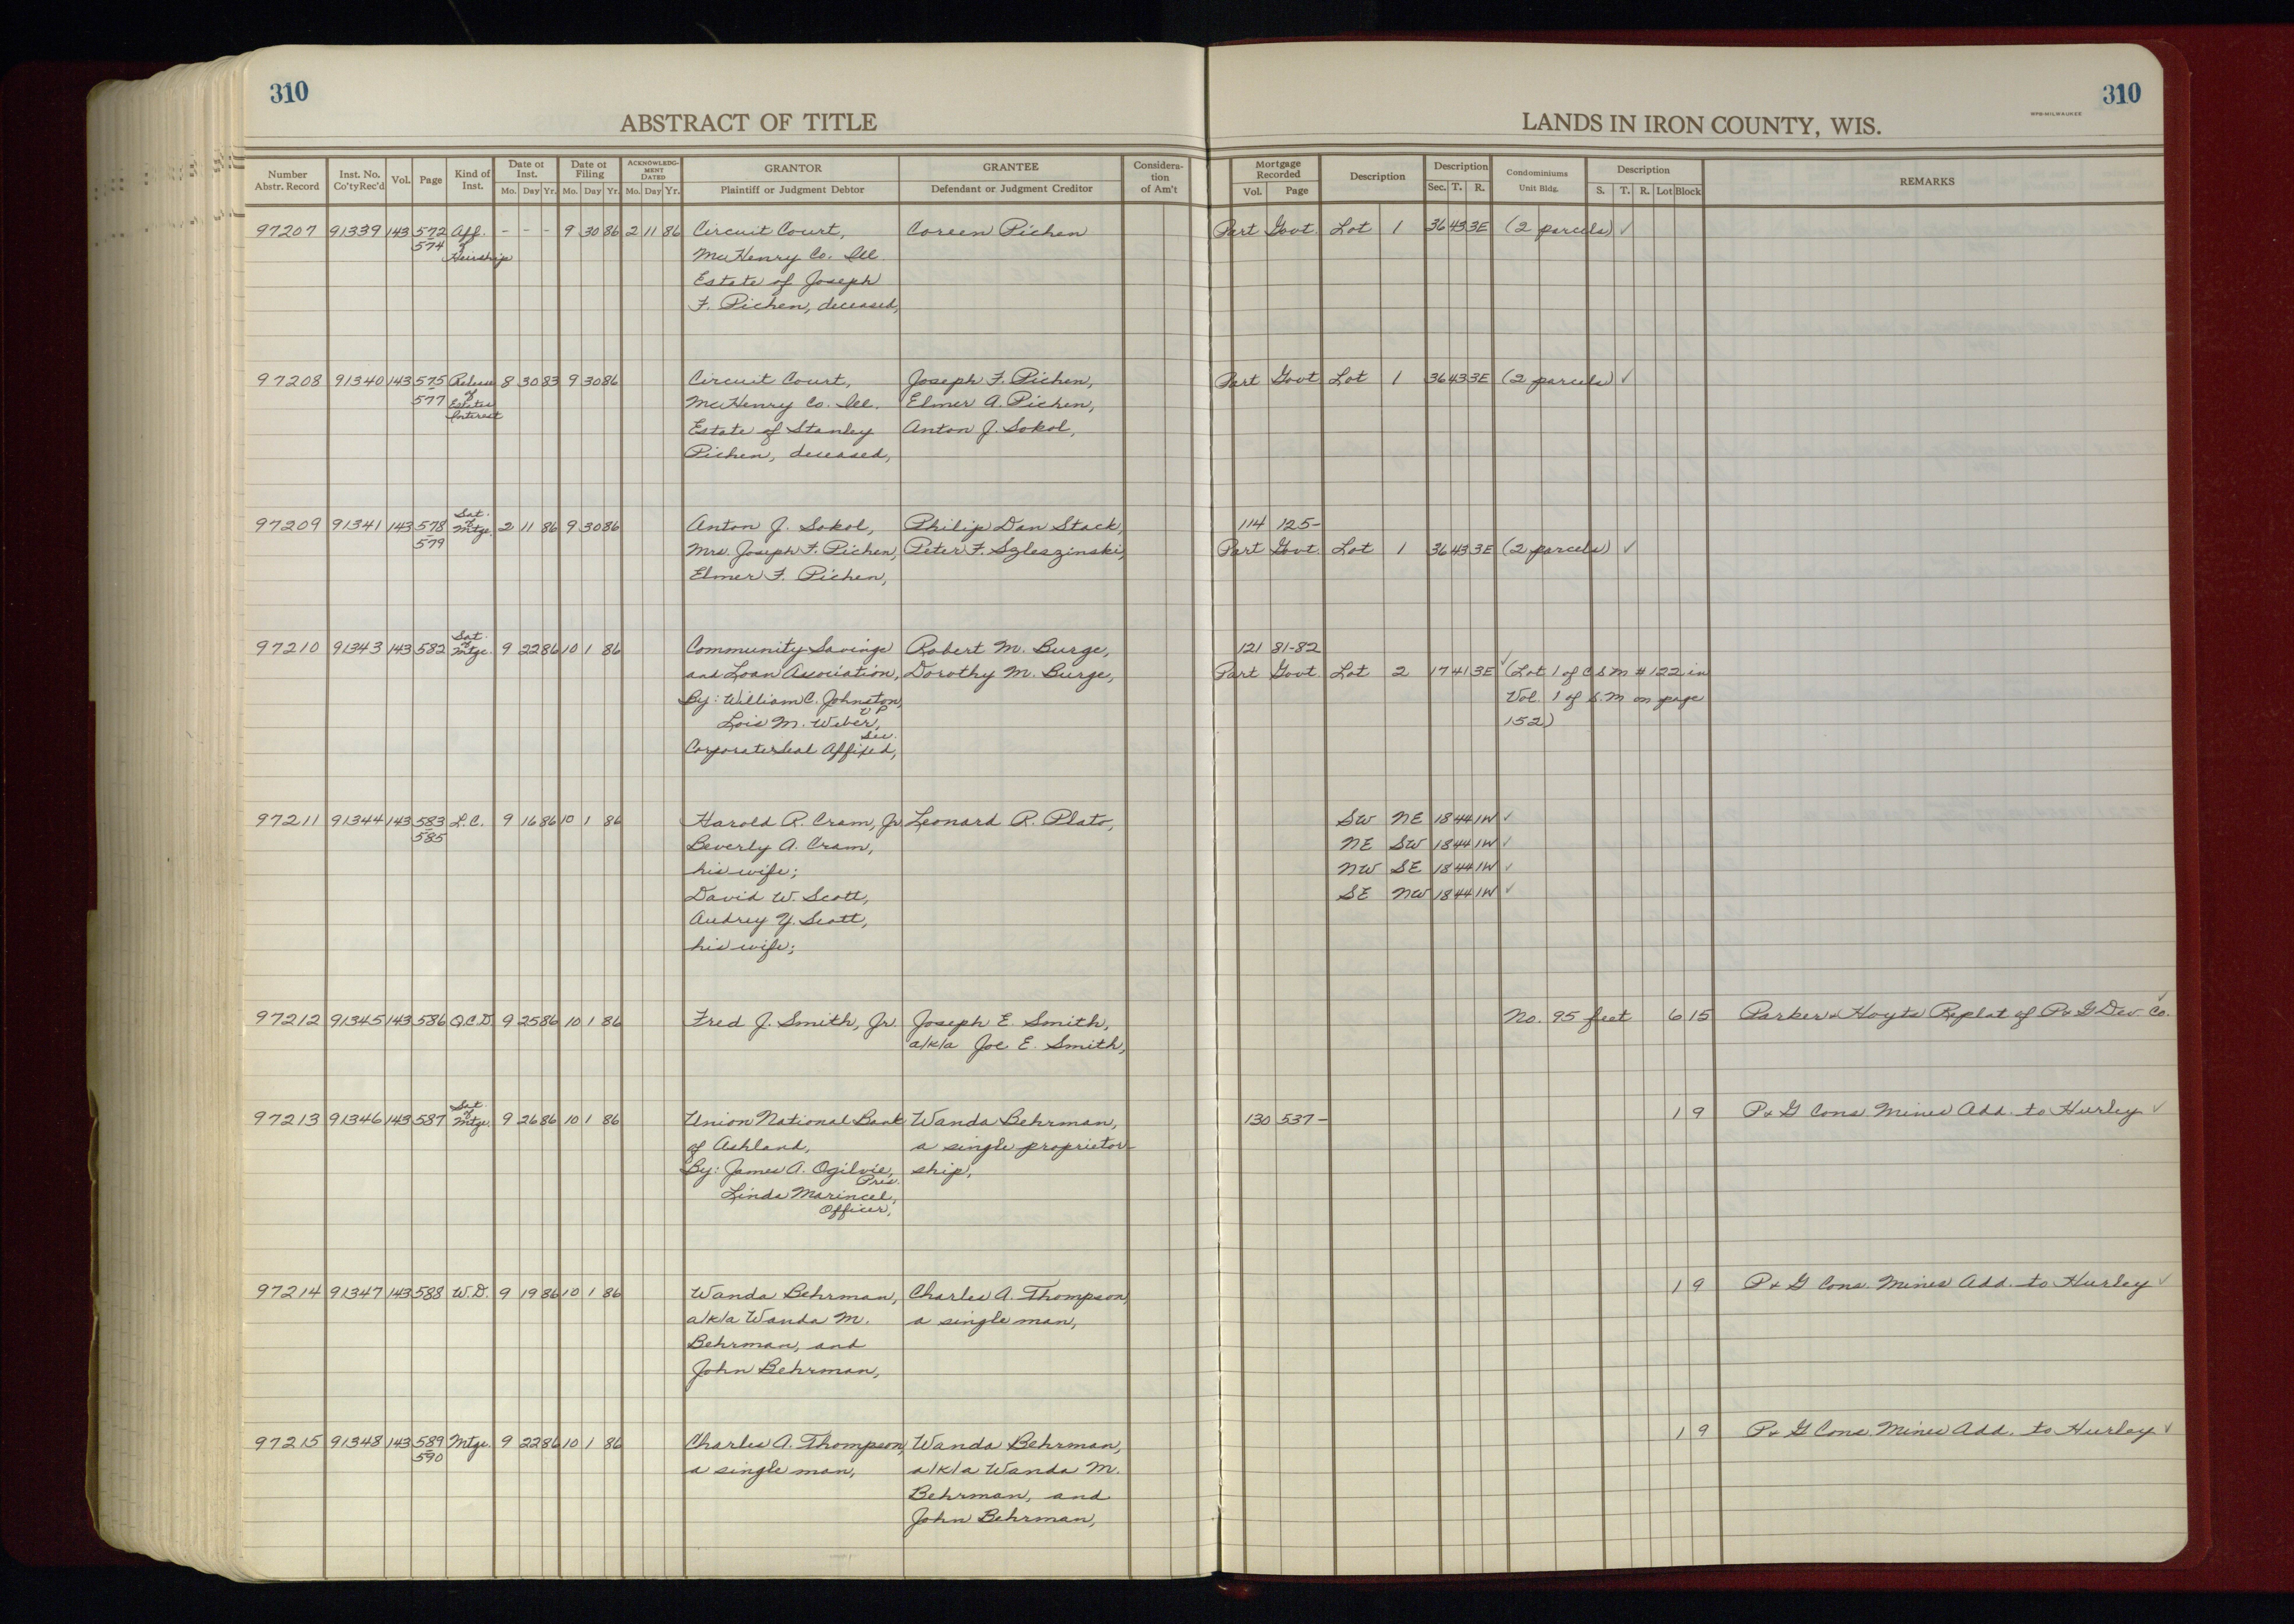 310
310
ABSTRACT OF TITLE
LANDS IN IRON COUNTY, WIS.
WPB-MILWAUKEE
Number Abstr. Record | Inst. No. Co'ty Rec'd | Vol. | Page | Kind of Inst. | Date of Inst. Mo. Day Yr. | Date of Filing Mo. Day Yr. | ACKNOWLEDGMENT DATED Mo. Day Yr. | GRANTOR Plaintiff or Judgment Debtor | GRANTEE Defendant or Judgment Creditor | Consideration of Am't | Mortgage Recorded Vol. Page | Description | Description Sec. T. R. | Condominiums Unit Bldg. | Description S. T. R. Lot Block | REMARKS
97207 91339 143 572 Aff. - - - 9 30 86 2 11 86 Circuit Court, Coreen Pichen Part Govt. Lot 1 36 43 3E (2 parcels) ✓
574 of
Heirship McHenry Co. Ill.
Estate of Joseph
F. Pichen, deceased,
97208 91340 143 575 Release 8 30 83 9 30 86 Circuit Court, Joseph F. Pichen, Part Govt Lot 1 36 43 3E (2 parcels) ✓
577 of Estates McHenry Co. Ill. Elmer A. Pichen,
Interest Estate of Stanley Anton J. Sokol,
Pichen, deceased,
97209 91341 143 578 Sat. of Mtge. 2 11 86 9 30 86 Anton J. Sokol, Philip Dan Stack, 114 125-
579 Mrs. Joseph F. Pichen, Peter F. Szleszinski, Part Govt. Lot 1 36 43 3E (2 parcels) ✓
Elmer F. Pichen,
97210 91343 143 582 Sat. of Mtge. 9 22 86 10 1 86 Community Savings Robert M. Burge, 121 81-82
and Loan Association, Dorothy M. Burge, Part Govt. Lot 2 17 41 3E ✓ (Lot 1 of CSM #122 in
By: William C. Johnston, VP Vol. 1 of S.M on page
Lois M. Weber, Sec. 152)
Corporate Seal Affixed,
97211 91344 143 583 L.C. 9 16 86 10 1 86 Harold R. Cram, Jr. Leonard R. Plato, SW NE 18 44 1W ✓
585 Beverly A. Cram, NE SW 18 44 1W ✓
his wife; NW SE 18 44 1W ✓
David W. Scott, SE NW 18 44 1W ✓
Audrey Y. Scott,
his wife;
97212 91345 143 586 Q.C.D. 9 25 86 10 1 86 Fred J. Smith, Jr. Joseph E. Smith, No. 95 feet 6 15 Parker & Hoyts Replat of P & G Dev Co. ✓
a/k/a Joe E. Smith,
97213 91346 143 587 Sat. of Mtge. 9 26 86 10 1 86 Union National Bank Wanda Behrman, 130 537- 1 9 P & G Cons. Mines Add. to Hurley ✓
of Ashland, a single proprietor-
By: James A. Ogilvie, Pres. ship,
Linda Marincel,
Officer,
97214 91347 143 588 W.D. 9 19 86 10 1 86 Wanda Behrman, Charles A. Thompson, 1 9 P & G Cons. Mines Add. to Hurley ✓
a/k/a Wanda M. a single man,
Behrman, and
John Behrman,
97215 91348 143 589 Mtge. 9 22 86 10 1 86 Charles A. Thompson, Wanda Behrman, 1 9 P & G Cons. Mines Add. to Hurley ✓
590 a single man, a/k/a Wanda M.
Behrman, and
John Behrman,